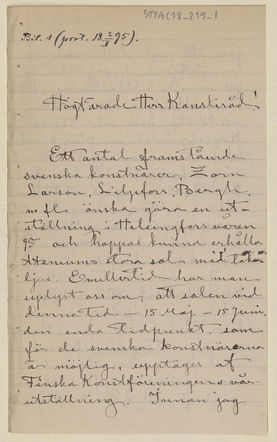 STYA(18-219-1
Bil. 1 (prot. 18 3/I 95).
Högtärade Herr Kansliråd!
Ett antal framstående
svenska konstnärer, Zorn
Larson, Liljefors, Bergh,
m. fl. önska göra en ut-
ställning i Helsingfors våren
95 och hoppas kunna erhålla
Ateneums stora sal med tak-
ljus. Emellertid har man
upplyst oss om, att salen vid
denna tid – 15 Maj – 15 Juni,
den enda tidpunkt, som
för de svenska konstnärerna
är möjlig, upptages af
Finska Konstföreningens vår-
utställning. Innan jag